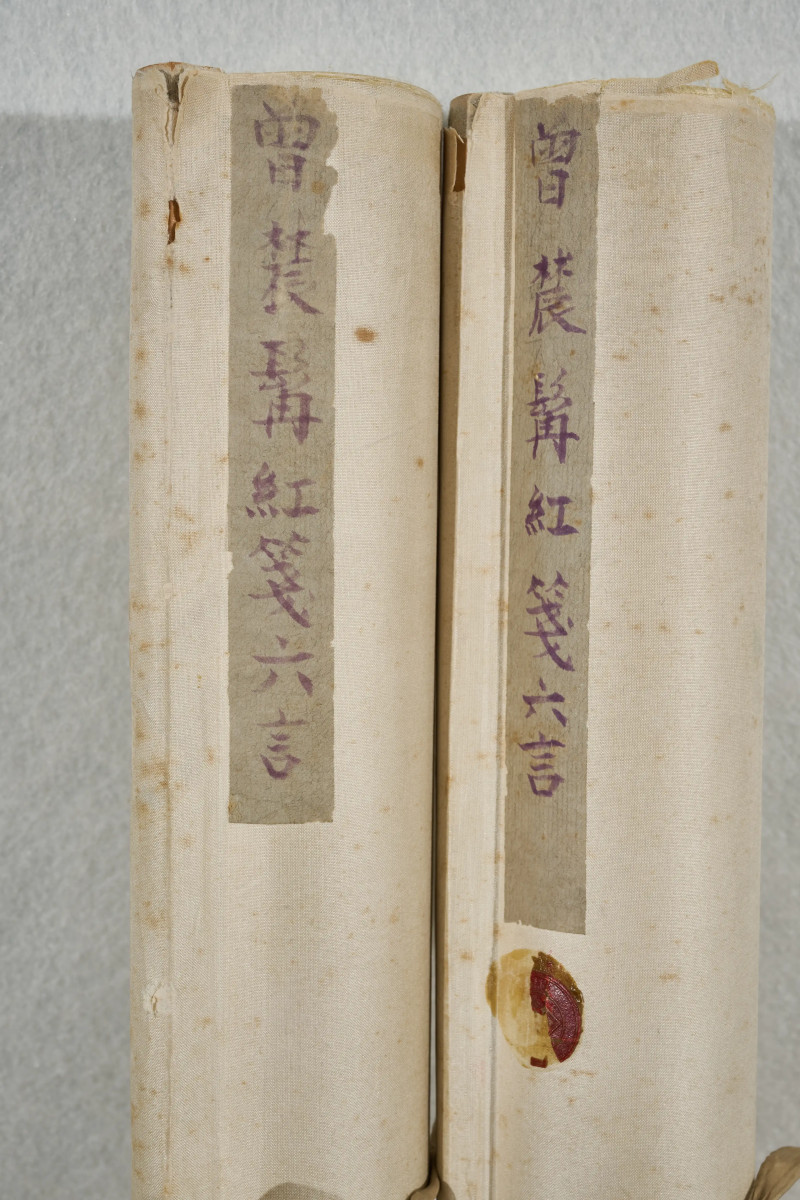 曾辳髯紅箋六言
曾辳髯紅箋六言